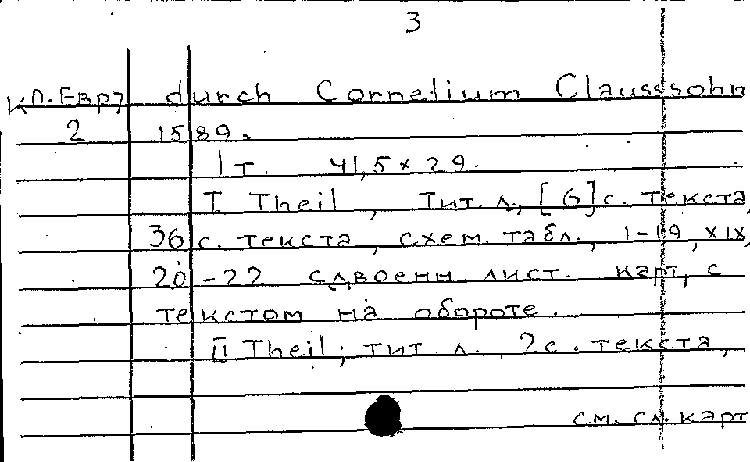 3
кп. Евр7 durch Cornelium Claussohn
2 1589.
1 т. 41,5 × 29.
I. Theil, Тит. л., [6] с. текста,
36 с. текста, схем. табл., 1-19, XIX,
20-22 сдвоенн лист. карт, с
текстом на обороте.
II Theil; тит. л. 2 с. текста,
см. сл. карт